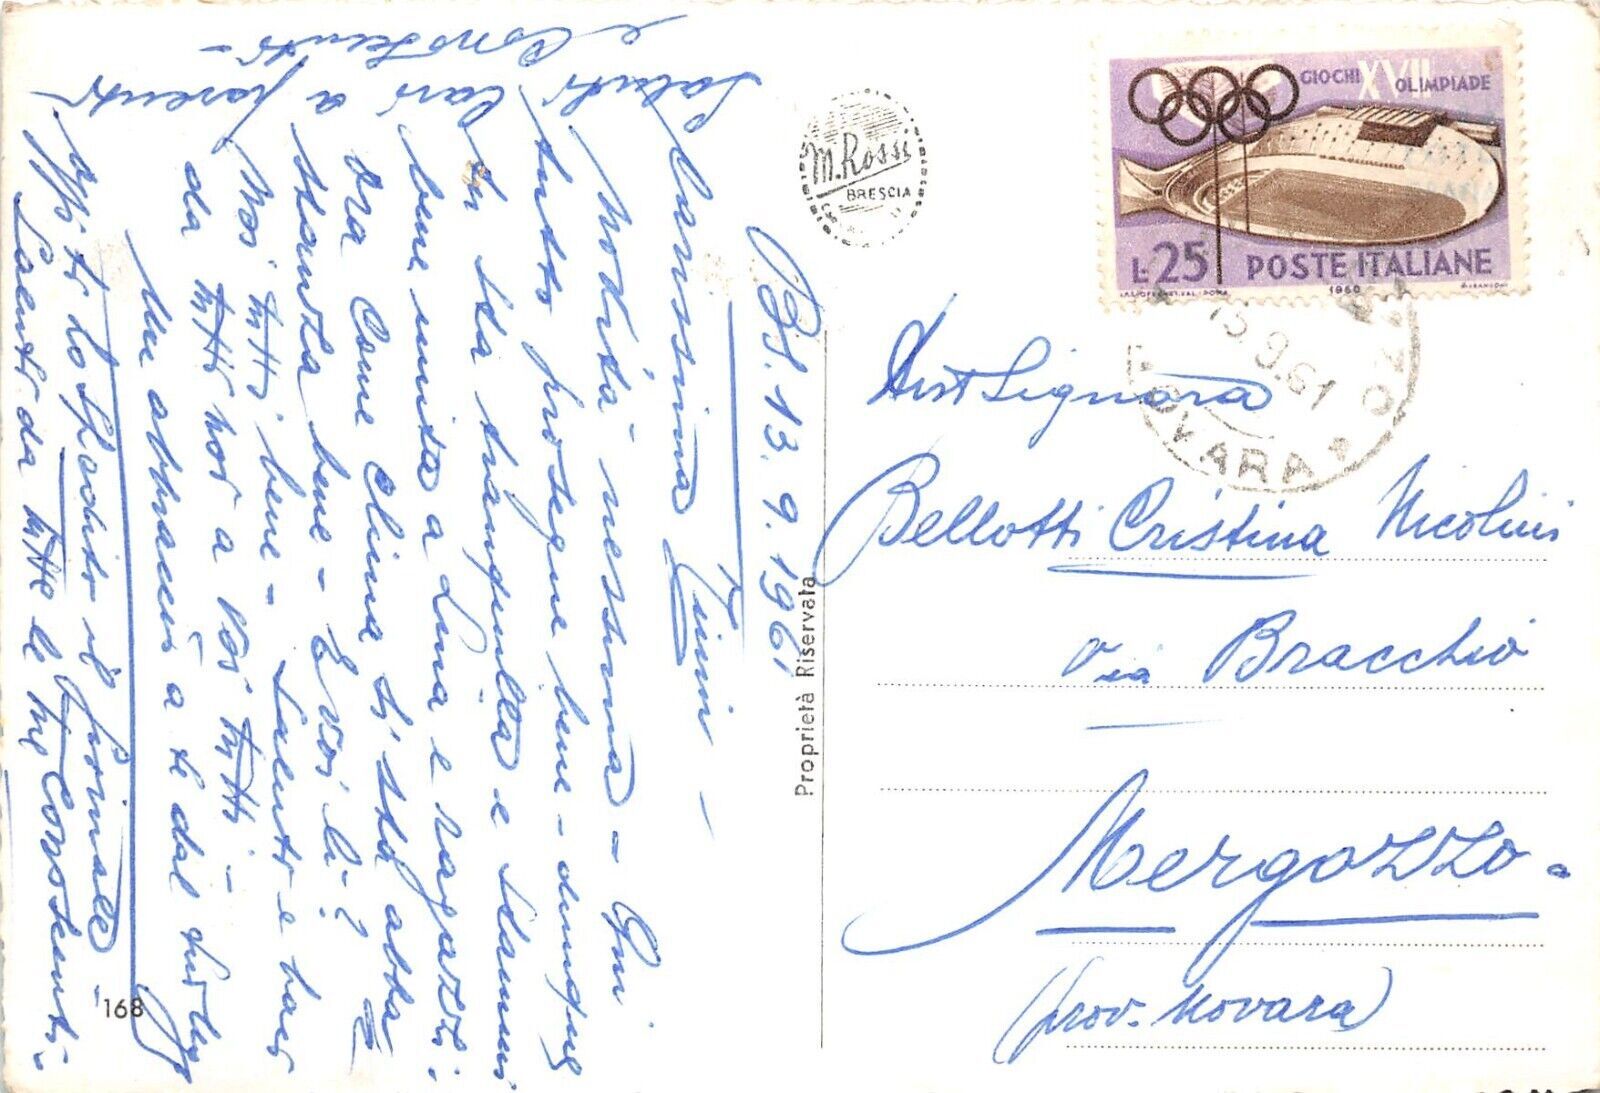 GIOCHI XVII OLIMPIADE
L. 25 POSTE ITALIANE
1960
15.9.61
NOVARA
M. Rossi
BRESCIA
Proprietà Riservata
168
Bs. 13. 9. 1961
Carissima Ninì -
Novità - nessuna - Qui
tutto prosegue bene - dunque
sta tranquilla e stammi
bene unita a Lina e ragazzi.
Ora come clima si sta abba
stanza bene - E voi lì?
Noi tutti bene - Saluti e baci
da tutti noi a voi tutti -
Un abbraccio a te dal tuo
Saluti da tutte le tue conoscenti -
Saluti cari a parenti
e conoscenti -
Signora
Bellotti Cristina Nicolini
Via Bracchio
Mergozzo -
(prov. Novara)